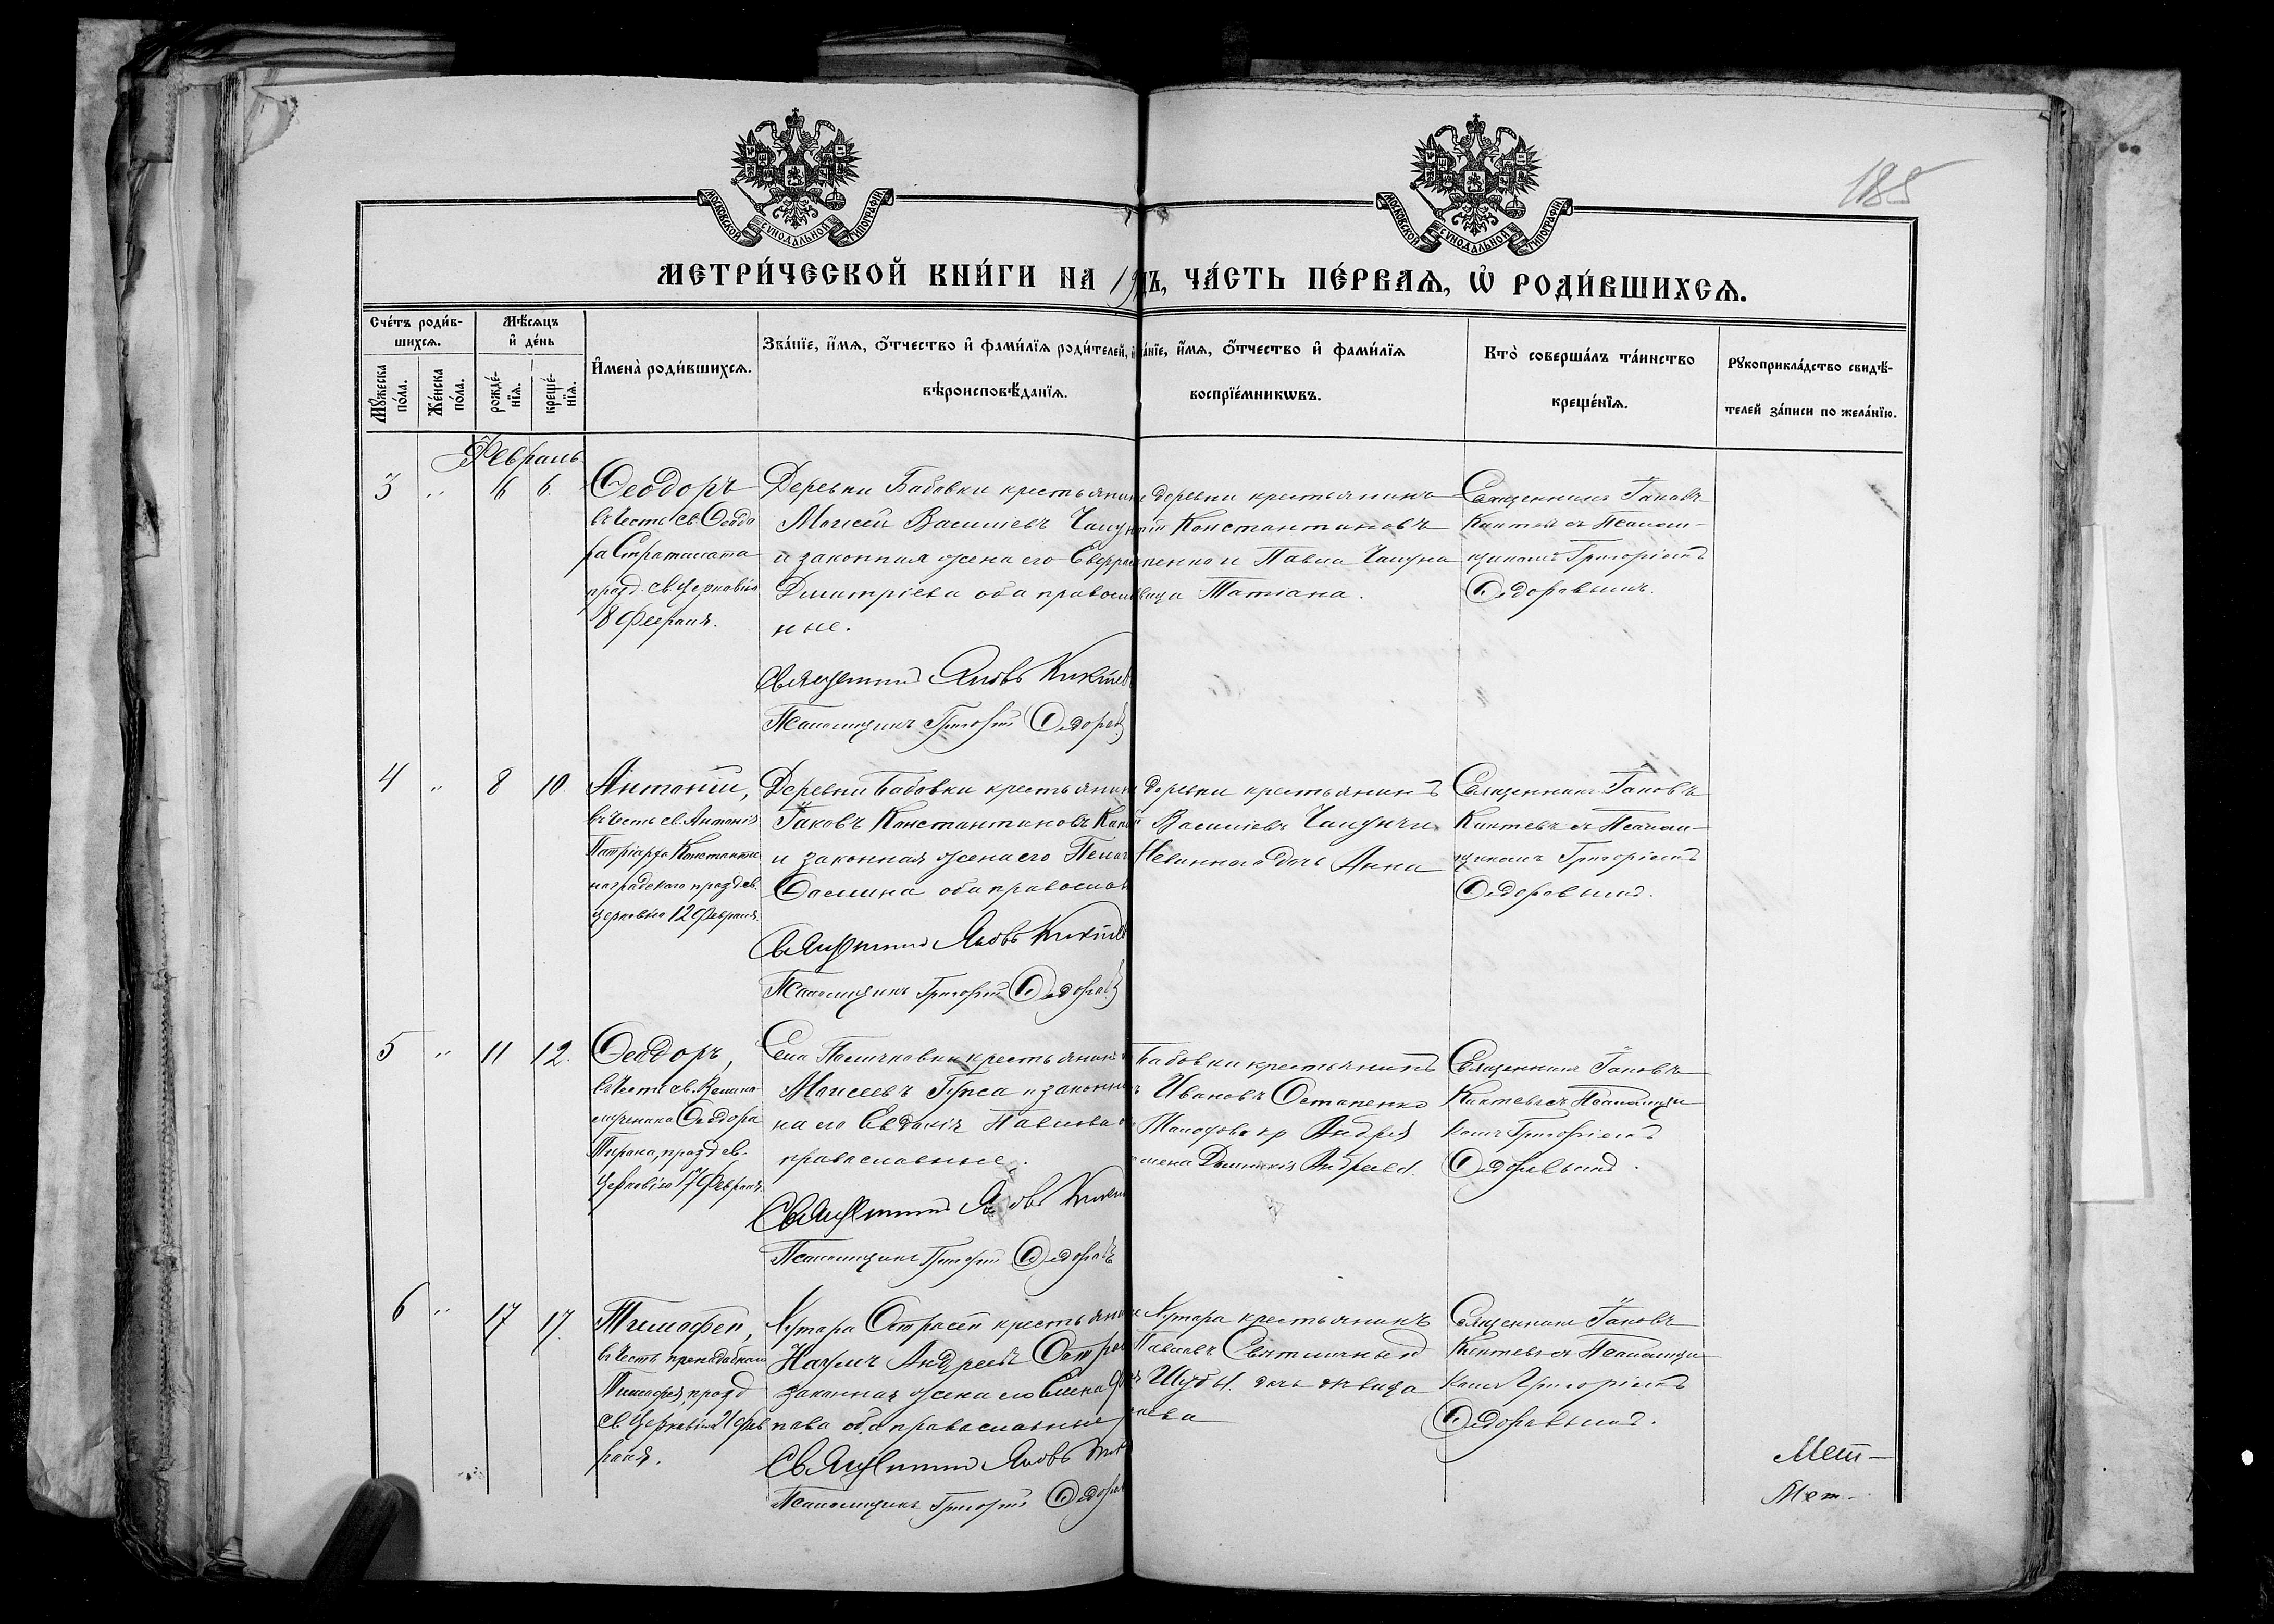 185
МОСКОВСКОЙ СУНОДАЛЬНОЙ ТИПОГРАФІИ
МОСКОВСКОЙ СУНОДАЛЬНОЙ ТИПОГРАФІИ
МЕТРИ́ЧЕСКОЙ КНИ́ГИ НА 19 ДЪ, ЧА́СТЬ ПЕ́РВАѦ, Ѡ҆ РОДИ́ВШИХСѦ.
Сче́тъ роди́в-
шихсѧ.
Мꙋ́жеска
по́ла.
Же́нска
по́ла.
Мѣ́сѧцъ
и҆ де́нь
рожде́-
нїѧ.
креще́-
нїѧ.
И҆мена̀ роди́вшихсѧ.
Зва́нїе, и҆́мѧ, ѻ҆́тчество и҆ фами́лїѧ роди́телей, и҆
вѣроисповѣ́данїѧ.
ва́нїе, и҆́мѧ, ѻ҆́тчество и҆ фами́лїѧ
воспрїе́мникѡвъ.
Кто̀ соверша́лъ та́инство
креще́нїѧ.
Рꙋкоприкла́дство свидѣ́-
телей за́писи по жела́нїю.
Февраль
3 " 6 6.
Ѳеодоръ
въ честь св. Ѳеодо
ра Стратилата
празд. св. церковію
8 Февраля.
Деревни Бабовки крестьянин
Моисей Василіевъ Чалун
и законная жена его Евфро
Димитріева оба правосла
ные.
Священникъ Яковъ Киктев
Псаломщикъ Григорій Ѳедоров
деревни крестьянинъ
Константиновъ
пенко и Павла Чалуна
вица Татіана.
Священникъ Іаковъ
Киктевъ съ Псалом-
щикомъ Григоріемъ
Ѳедоровымъ.
4 " 8 10
Антоній,
въ честь св. Антонія
Патріарха Константи
ноградскаго празд. св.
церковію 12 Февраля.
Деревни Бабовки крестьянин
Іаковъ Константиновъ
и законная жена его Пелаг
оба правослов
Священникъ Яковъ Киктев
Псаломщикъ Григорій Ѳедоров
деревни крестьянинъ
Василіевъ Чалунъ и
дочь Анна
Священникъ Іаковъ
Киктевъ съ Псалом-
щикомъ Григоріемъ
Ѳедоровымъ.
5 " 11 12.
Ѳеодоръ,
въ честь св. Велико-
мученика Ѳеодора
Тирона, празд. св.
церковію 17 Февраля.
Села крестьянин
Моисеевъ и законн
на его Евдокія Павлова
православные.
Священникъ Яковъ Кикте
Псаломщикъ Григорій Ѳедоровъ
Бабовки крестьянинъ
Ивановъ Остапенко
кр Андрея
жена Андреева.
Священникъ Іаковъ
Киктевъ съ Псаломщи
комъ Григоріемъ
Ѳедоровымъ.
6 " 17 17.
Тимофей,
въ честь преподобнаго
Тимофея, празд
св. Церковію 21 Фев
раля.
Хутора крестьянин
Наумъ Андреевъ
законная жена его Елена
пова оба православные
Священникъ Яковъ Кик
Псаломщикъ Григорій Ѳедоров
Хутора крестьянинъ
Павловъ
Шубы. дочь дѣвица
аева
Священникъ Іаковъ
Киктевъ съ Псаломщи
комъ Григоріемъ
Ѳедоровымъ.
Мет-
Мет-